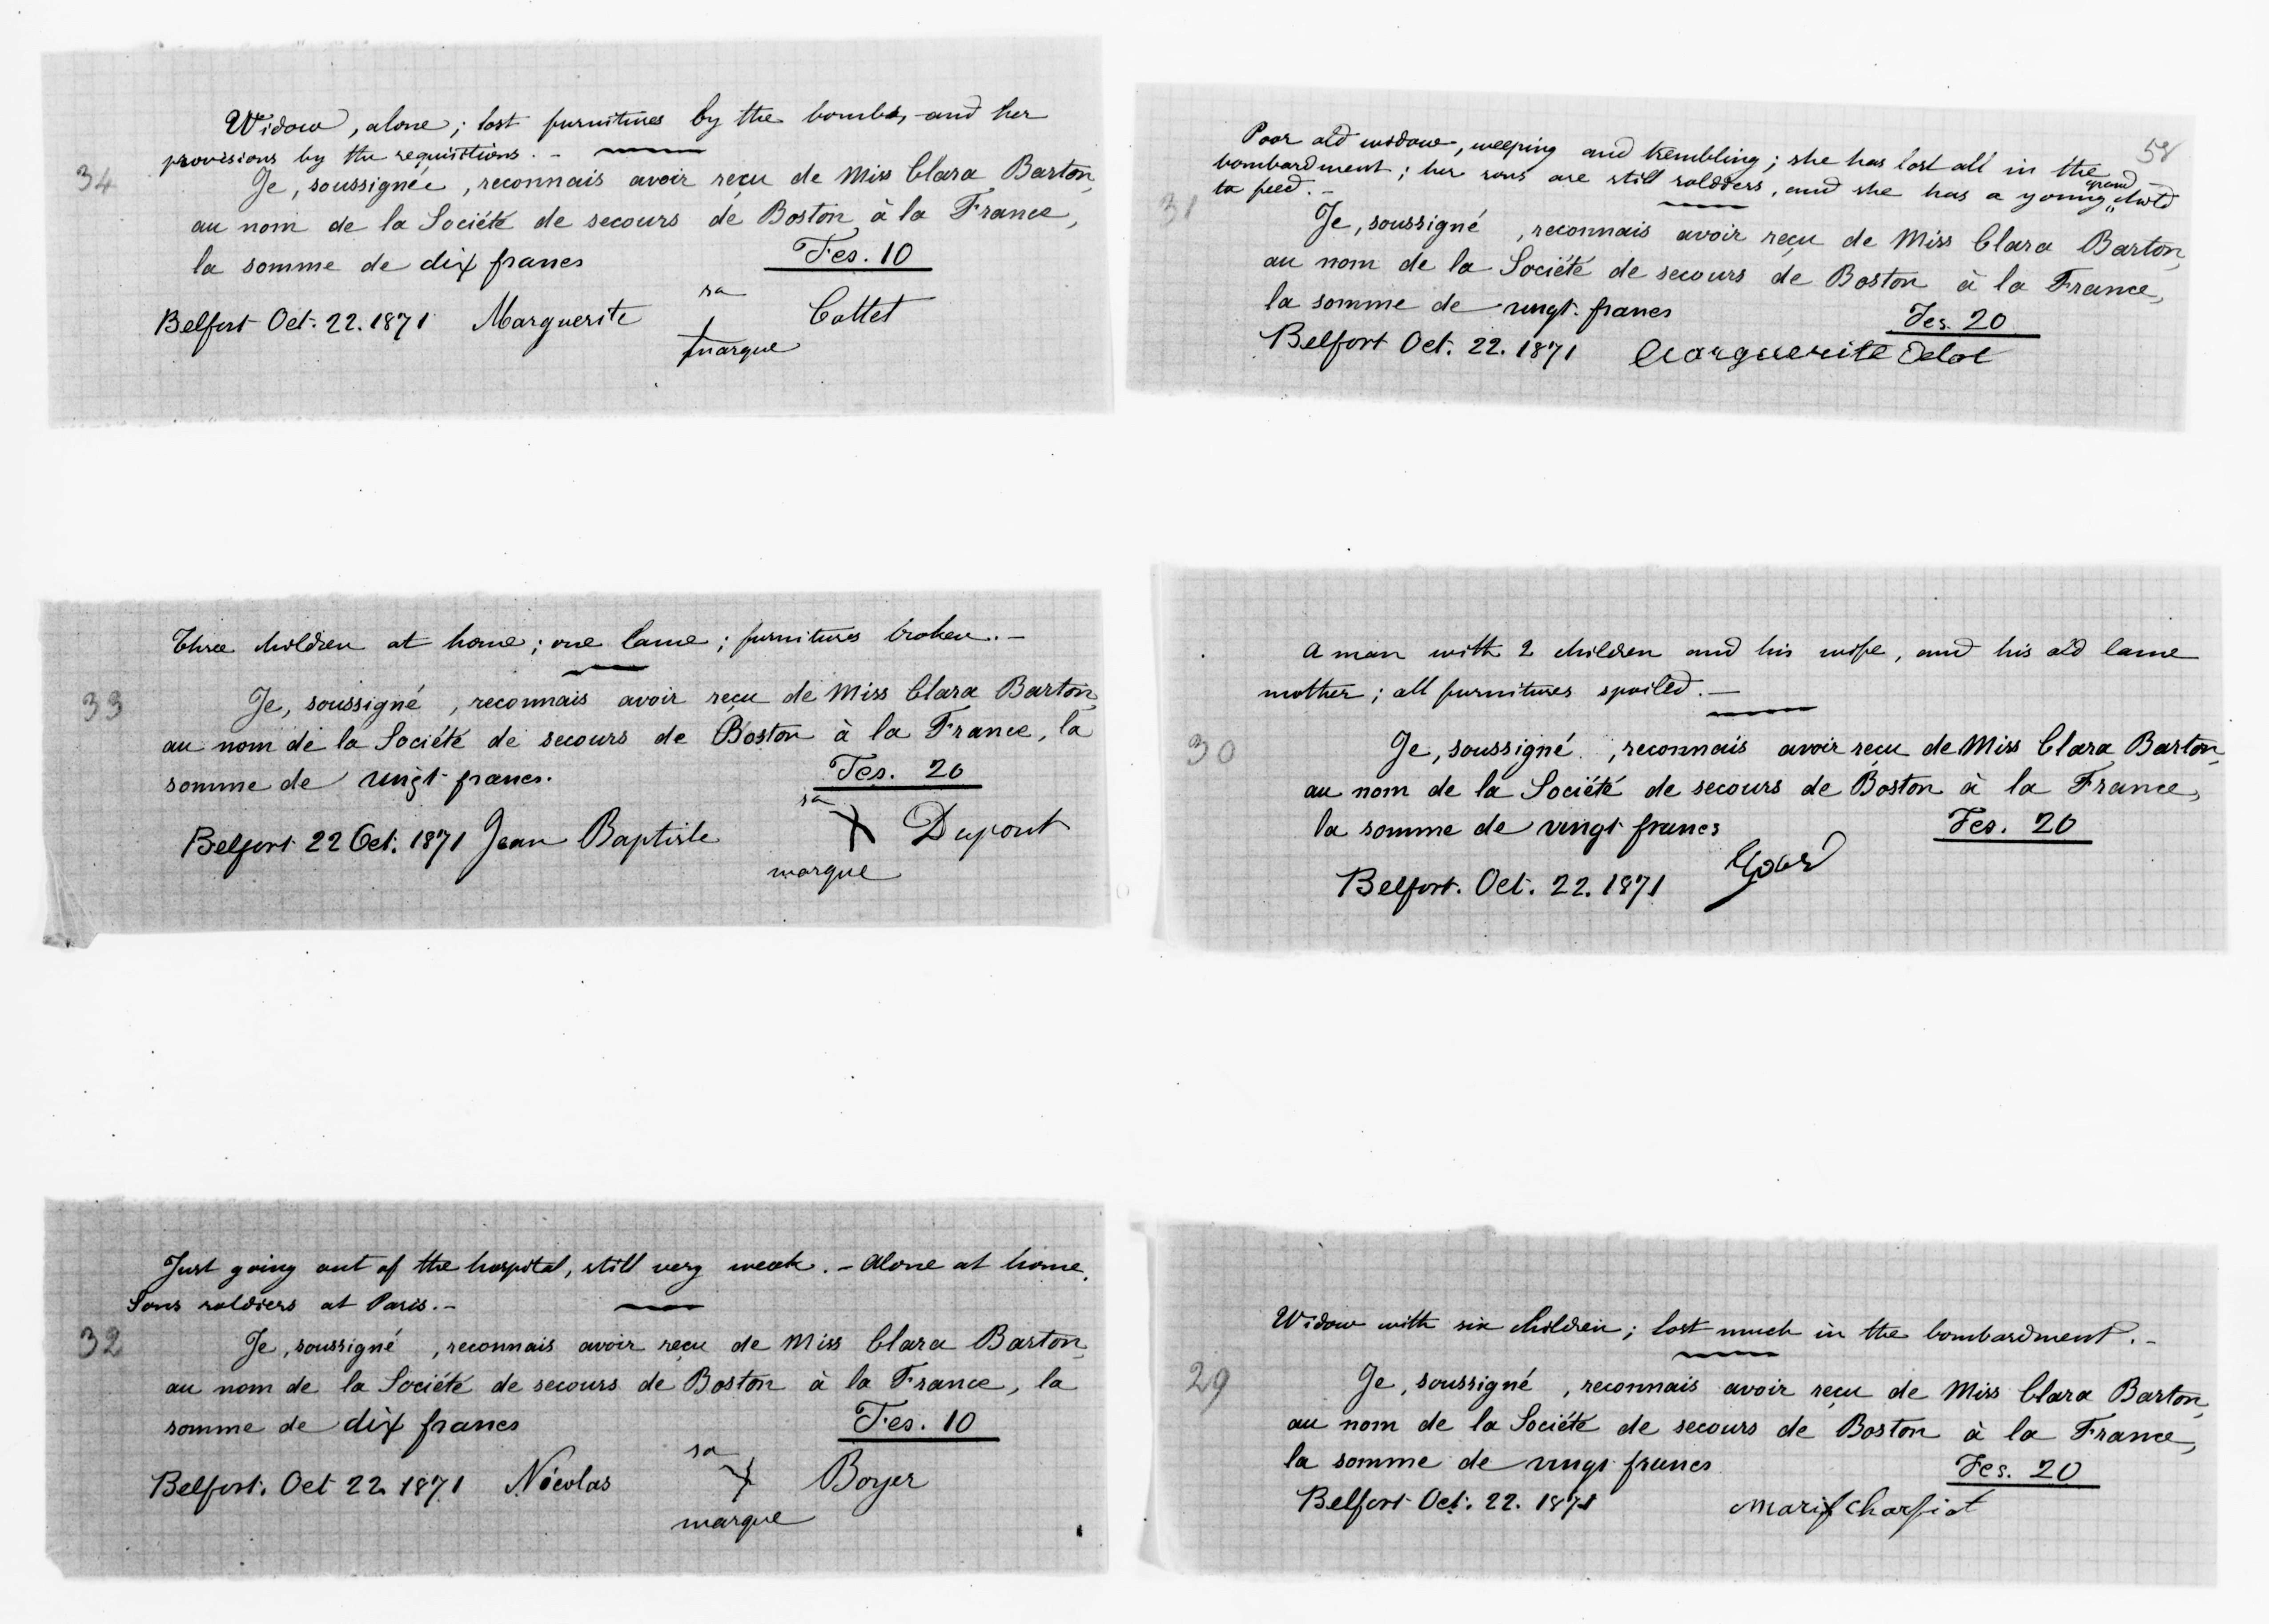 34
Widow, alone; lost furnitures by the bombs, and her
provisions by the requisitions. -
Je, soussignée, reconnais avoir reçu de Miss Clara Barton,
au nom de la Société de secours de Boston à la France,
la somme de dix francs Fcs. 10
Belfort Oct. 22. 1871 Marguerite sa + marque Cottet
33
Three children at home; one lame; furnitures broken. -
Je, soussigné, reconnais avoir reçu de Miss Clara Barton,
au nom de la Société de secours de Boston à la France, la
somme de vingt francs. Fcs. 20
Belfort 22 Oct. 1871 Jean Baptiste sa X marque Dupont
32
Just going out of the hospital, still very weak. - Alone at home.
Sons soldiers at Paris. -
Je, soussigné, reconnais avoir reçu de Miss Clara Barton,
au nom de la Société de secours de Boston à la France, la
somme de dix francs Fcs. 10
Belfort. Oct 22. 1871 Nicolas sa X marque Boyer
58
31
Poor old widow, weeping and trembling; she has lost all in the
bombardment; her sons are still soldiers, and she has a young grand child
to feed. -
Je, soussigné, reconnais avoir reçu de Miss Clara Barton,
au nom de la Société de secours de Boston à la France,
la somme de vingt francs Fcs. 20
Belfort Oct. 22. 1871 Marguerite
30
A man with 2 children and his wife, and his old lame
mother; all furnitures spoiled. -
Je, soussigné, reconnais avoir reçu de Miss Clara Barton,
au nom de la Société de secours de Boston à la France,
la somme de vingt francs Fcs. 20
Belfort. Oct. 22. 1871
29
Widow with six children; lost much in the bombardment. -
Je, soussigné, reconnais avoir reçu de Miss Clara Barton,
au nom de la Société de secours de Boston à la France,
la somme de vingt francs Fcs. 20
Belfort Oct. 22. 1871 Marie Charpiot